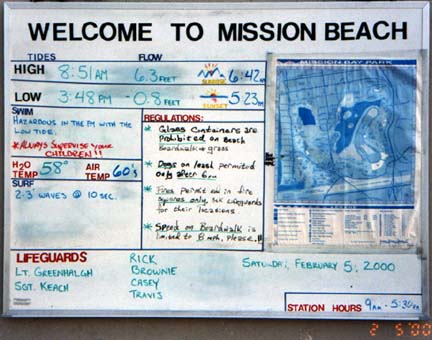 WELCOME TO MISSION BEACH
TIDES FLOW
HIGH 8:51AM 6.3 FEET SUNRISE 6:42AM
LOW 3:48PM -0.8 FEET SUNSET 5:23PM
SWIM
HAZARDOUS IN THE PM WITH THE
LOW TIDE.
*ALWAYS SUPERVISE YOUR
CHILDREN!!
H2O TEMP 58° AIR TEMP 60's
SURF
2-3' WAVES @ 10 SEC.
REGULATIONS:
* Glass Containers are
prohibited on Beach
Boardwalk & grass
* Dogs on leash permitted
only after 6pm
* Fires permitted in fire
only, ask lifeguards
for their locations.
* Speed on Boardwalk is
limited to 8 mph, please!!
MISSION BAY PARK
LIFEGUARDS
LT. GREENHALGH
SGT. KEACH
RICK
BROWNIE
CASEY
TRAVIS
SATURDAY, FEBRUARY 5, 2000
STATION HOURS 9AM - 5:30PM
2 5'00